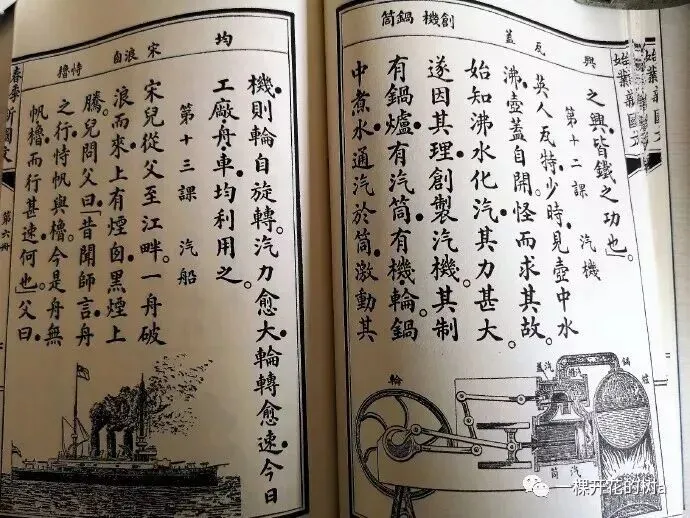 興 瓦 蓋 創 機 鍋 筒
之興皆鐵之功也。
第十二課 汽機
英人瓦特少時見壺中水
沸壺蓋自開怪而求其故。
始知沸水化汽其力甚大。
遂因其理創製汽機其制
有鍋爐有汽筒有機輪鍋
中煮水通汽於筒激動其
鍋
輪
汽筒
均 宋 浪 自 恃 櫓
機則輪自旋轉。汽力愈大輪轉愈速今日
工廠舟車均利用之。
第十三課 汽船
宋兒從父至江畔。一舟破
浪而來上有煙囪黑煙上
騰。兒問父曰「昔聞師言舟
之行恃帆與櫓今是舟無
帆櫓而行甚速何也」父曰
春季 新國文 第六冊
一棵开花的树a